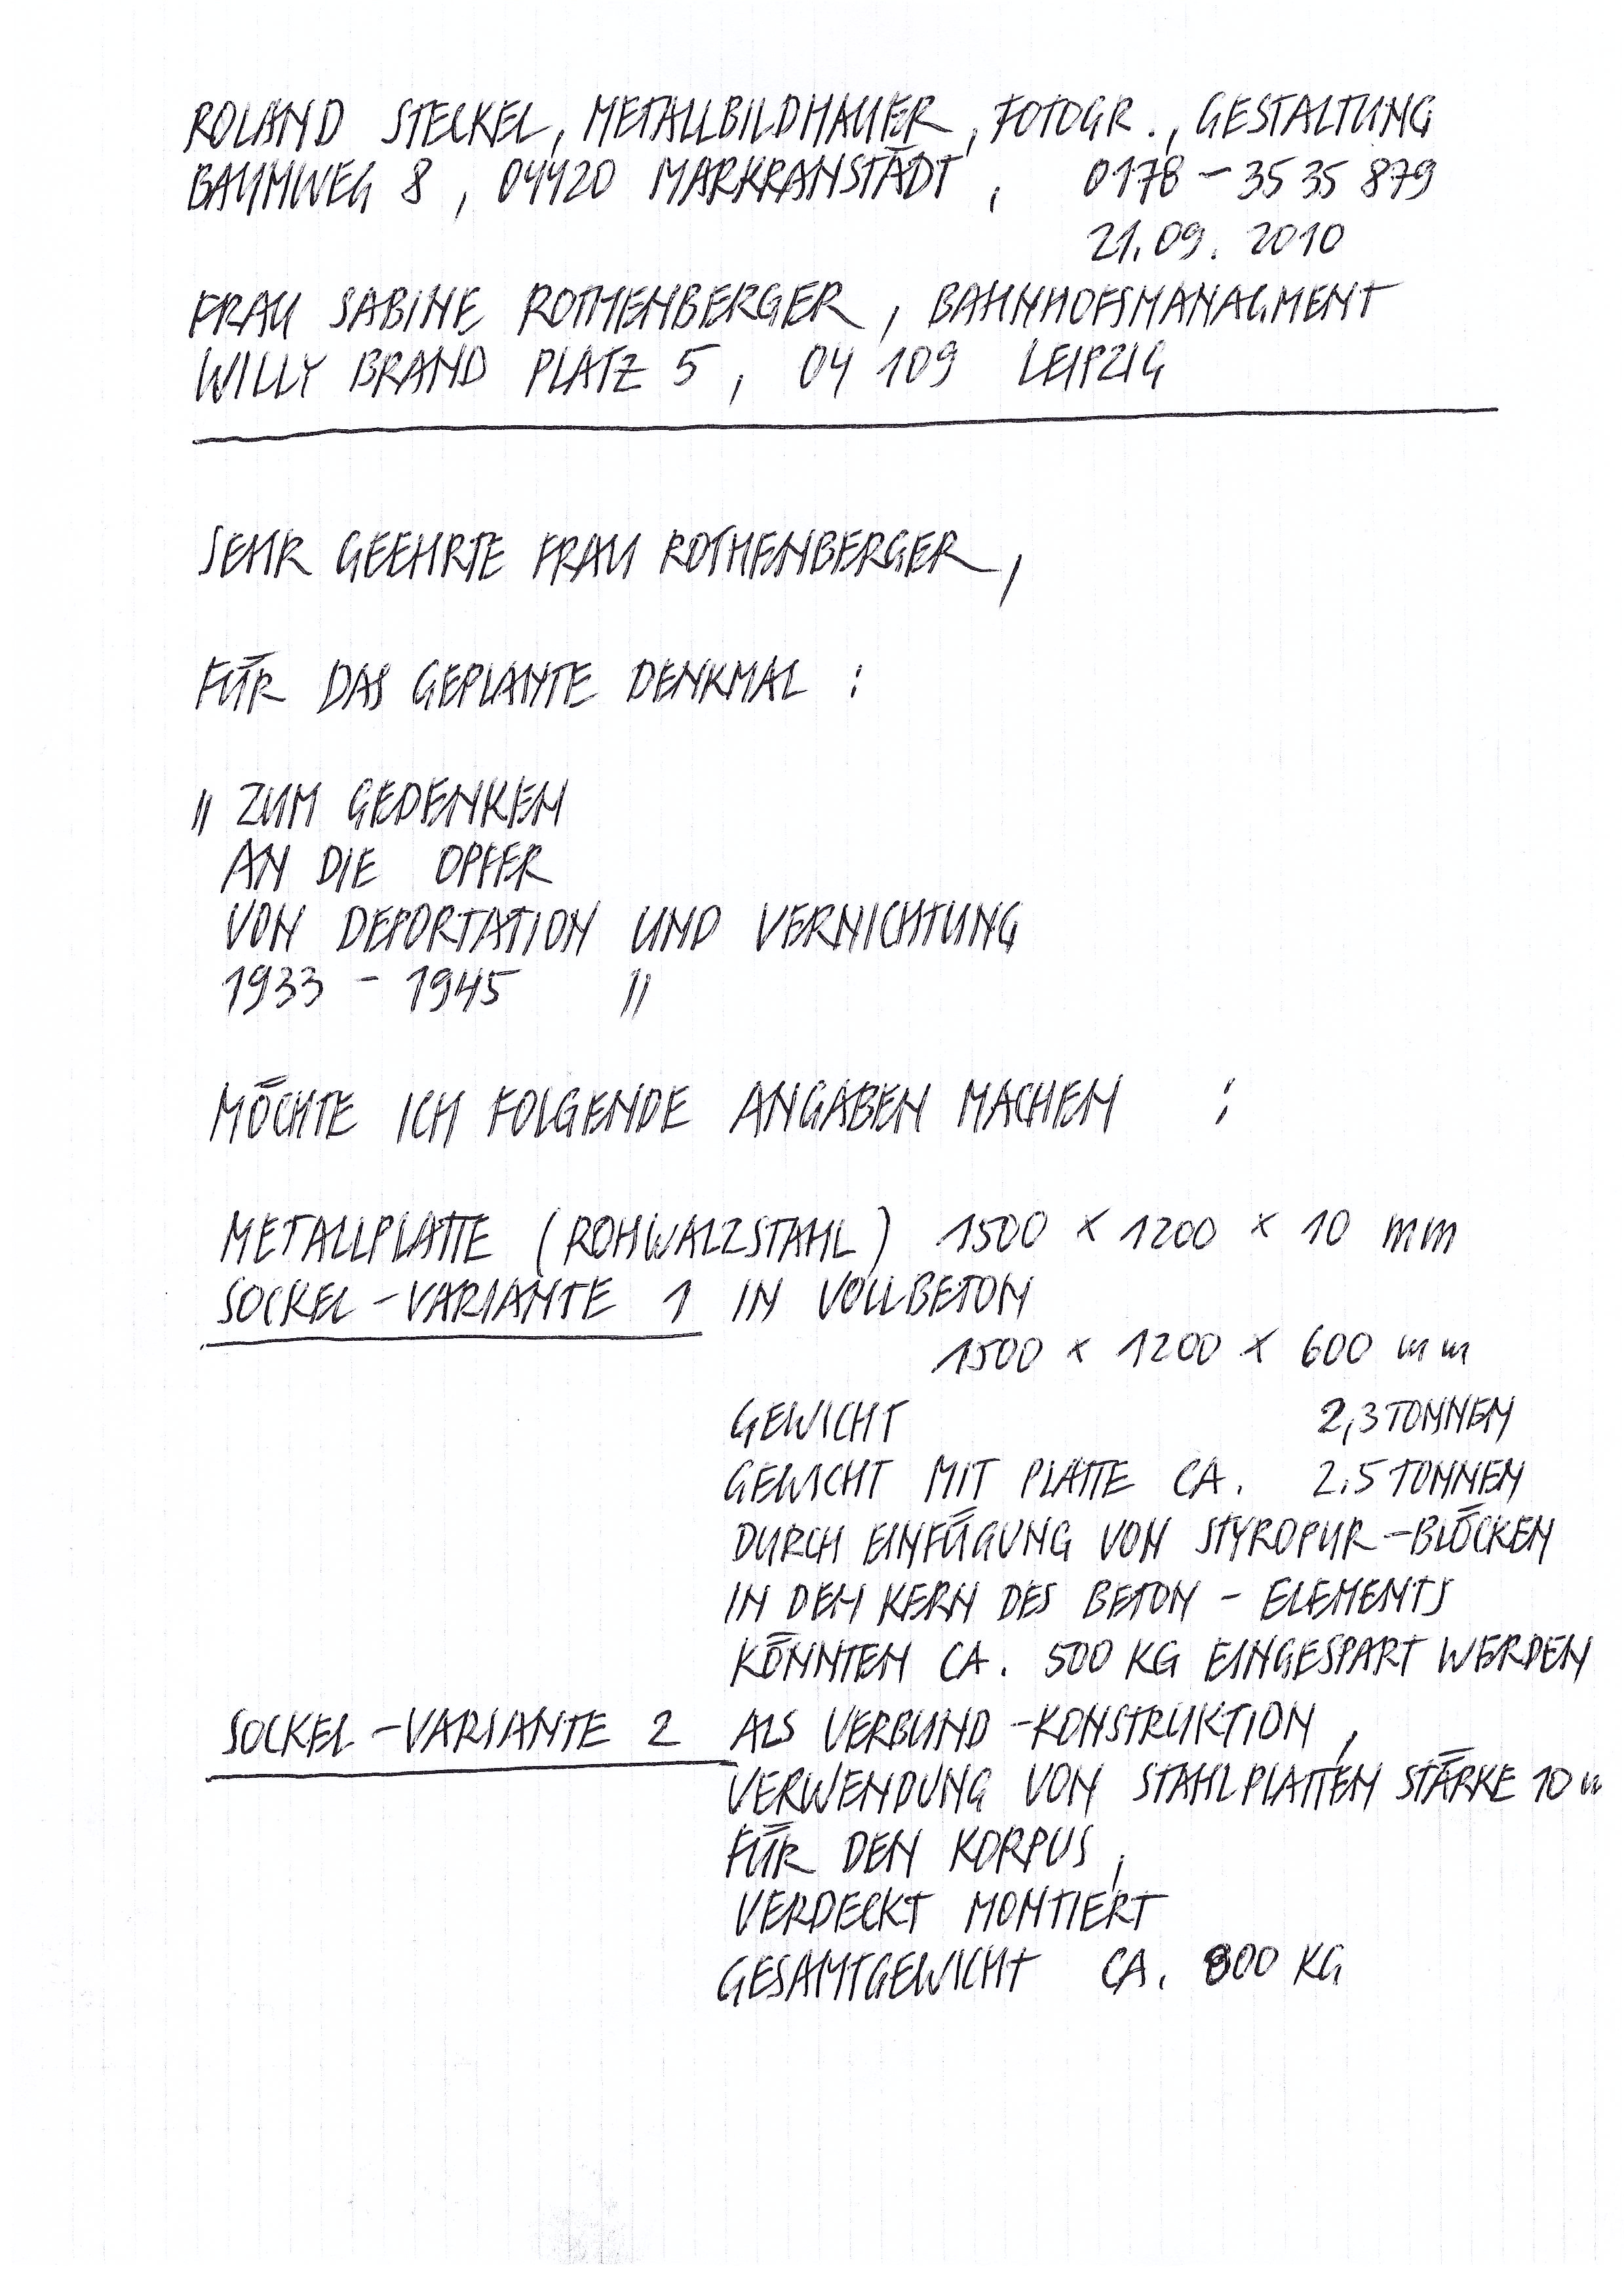 ROLAND STECKEL, METALLBILDHAUER, FOTOGR., GESTALTUNG
BAUMWEG 8, 04420 MARKRANSTÄDT, 0178 - 35 35 879
21.09.2010
FRAU SABINE ROTHENBERGER, BAHNHOFSMANAGMENT
WILLY BRAND PLATZ 5, 04 109 LEIPZIG
SEHR GEEHRTE FRAU ROTHENBERGER,
FÜR DAS GEPLANTE DENKMAL :
" ZUM GEDENKEN
AN DIE OPFER
VON DEPORTATION UND VERNICHTUNG
1933 - 1945 "
MÖCHTE ICH FOLGENDE ANGABEN MACHEN :
METALLPLATTE (ROHWALZSTAHL) 1500 x 1200 x 10 mm
SOCKEL-VARIANTE 1 IN VOLLBETON
1500 x 1200 x 600 mm
GEWICHT 2,3 TONNEN
GEWICHT MIT PLATTE CA. 2.5 TONNEN
DURCH EINFÜGUNG VON STYROPUR-BLÖCKEN
IN DEN KERN DES BETON - ELEMENTS
KÖNNTEN CA. 500 KG EINGESPART WERDEN
SOCKEL-VARIANTE 2 ALS VERBUND-KONSTRUKTION,
VERWENDUNG VON STAHLPLATTEN STÄRKE 10
FÜR DEN KORPUS,
VERDECKT MONTIERT
GESAMTGEWICHT CA. 800 KG